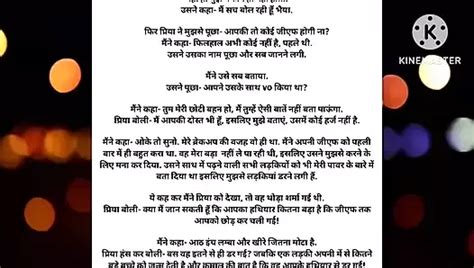 उसने कहा- मैं सच बोल रही हूँ भैया.
फिर प्रिया ने मुझसे पूछा- आपकी तो कोई जीएफ होगी ना?
मैंने कहा- फिलहाल अभी कोई नहीं है, पहले थी.
उसने उसका नाम पूछा और सब जानने लगी.
मैंने उसे सब बताया.
उसने पूछा- आपने उसके साथ ४० किया था?
मैंने कहा- तुम मेरी छोटी बहन हो, मैं तुम्हें ऐसी बातें नहीं बता पाऊंगा.
प्रिया बोली- मैं आपकी दोस्त भी हूँ, इसलिए मुझे बताएं, उसमें कोई हर्ज नहीं है.
मैंने कहा- ओके तो सुनो. मेरे ब्रेकअप की वजह वो ही था. मैंने अपनी जीएफ को पहली
बार में ही बहुत करा था. वह मेरा बड़ा नहीं ले पा रही थी, इसलिए उसने मुझसे करने के
लिए मना कर दिया. उसने साथ में पढ़ने वाली सभी लड़कियों को भी मेरी पावर के बारे में
बता दिया था इसलिए मुझसे लड़कियां डरने लगी हैं.
ये कह कर मैंने प्रिया को देखा, तो वह थोड़ा शर्मा गई थी.
प्रिया बोली- क्या मैं जान सकती हूँ कि आपका हथियार कितना बड़ा है कि जीएफ तक
आपको छोड़ कर चली गई!
मैंने कहा- आठ इंच लम्बा और खीरे जितना मोटा है.
प्रिया हंस कर बोली- बस वह इतने से ही डर गई? जबकि एक लड़की अपनी में से कितने
बड़े बच्चे को जन्म देती है और कमाल की बात है कि वह आपके हथियार से डर गई!
KINEMASTER